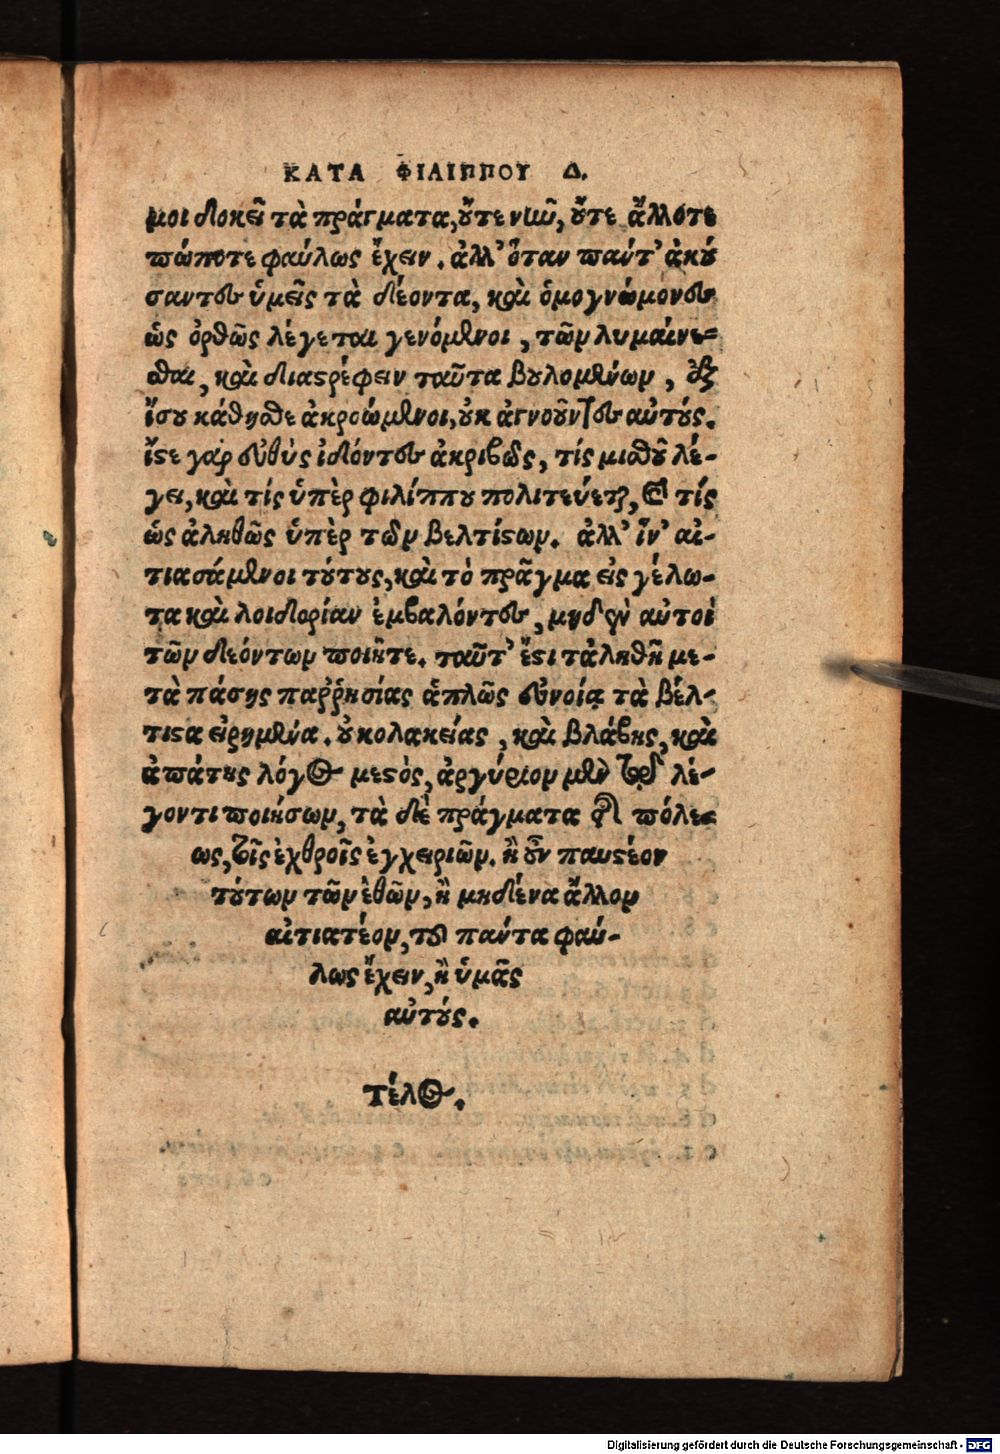 ΚΑΤΑ ΦΙΛΙΠΠΟΥ Δ.
μοι δοκεῖ τὰ πράγματα, οὔτε νῦν, οὔτε ἄλλοτε
πώποτε φαύλως ἔχειν. ἀλλ' ὅταν πάντ' ἀκού
σαντες ὑμεῖς τὰ δέοντα, καὶ ὁμογνώμονες
ὡς ὀρθῶς λέγεται γενόμενοι, τῶν λυμαίνε-
σθαι, καὶ διαστρέφειν ταῦτα βουλομένων, ἐξ
ἴσου κάθησθε ἀκροώμενοι, οὐκ ἀγνοοῦντες αὐτούς.
ἴστε γὰρ εὐθὺς ἰδόντες ἀκριβῶς, τίς μισθοῦ λέ-
γει, καὶ τίς ὑπὲρ φιλίππου πολιτεύεται, καὶ τίς
ὡς ἀληθῶς ὑπὲρ τῶν βελτίστων. ἀλλ' ἵν' αἰ-
τιασάμενοι τούτους, καὶ τὸ πρᾶγμα εἰς γέλω-
τα καὶ λοιδορίαν ἐμβαλόντες, μηδὲν αὐτοὶ
τῶν δεόντων ποιῆτε. ταῦτ' ἔστι τἀληθῆ με-
τὰ πάσης παῤῥησίας ἁπλῶς εὐνοίᾳ τὰ βέλ-
τιστα εἰρημένα. οὐ κολακείας, καὶ βλάβης, καὶ
ἀπάτης λόγος μεστὸς, ἀργύριον μὲν τῷ λέ-
γοντι ποιήσων, τὰ δὲ πράγματα τῆς πόλε-
ως, τοῖς ἐχθροῖς ἐγχειριῶν. ἢ οὖν παυστέον
τούτων τῶν ἐθῶν, ἢ μηδένα ἄλλον
αἰτιατέον, τοῦ πάντα φαύ-
λως ἔχειν, ἢ ὑμᾶς
αὐτούς.
Τέλος.
Digitalisierung gefördert durch die Deutsche Forschungsgemeinschaft - DFG